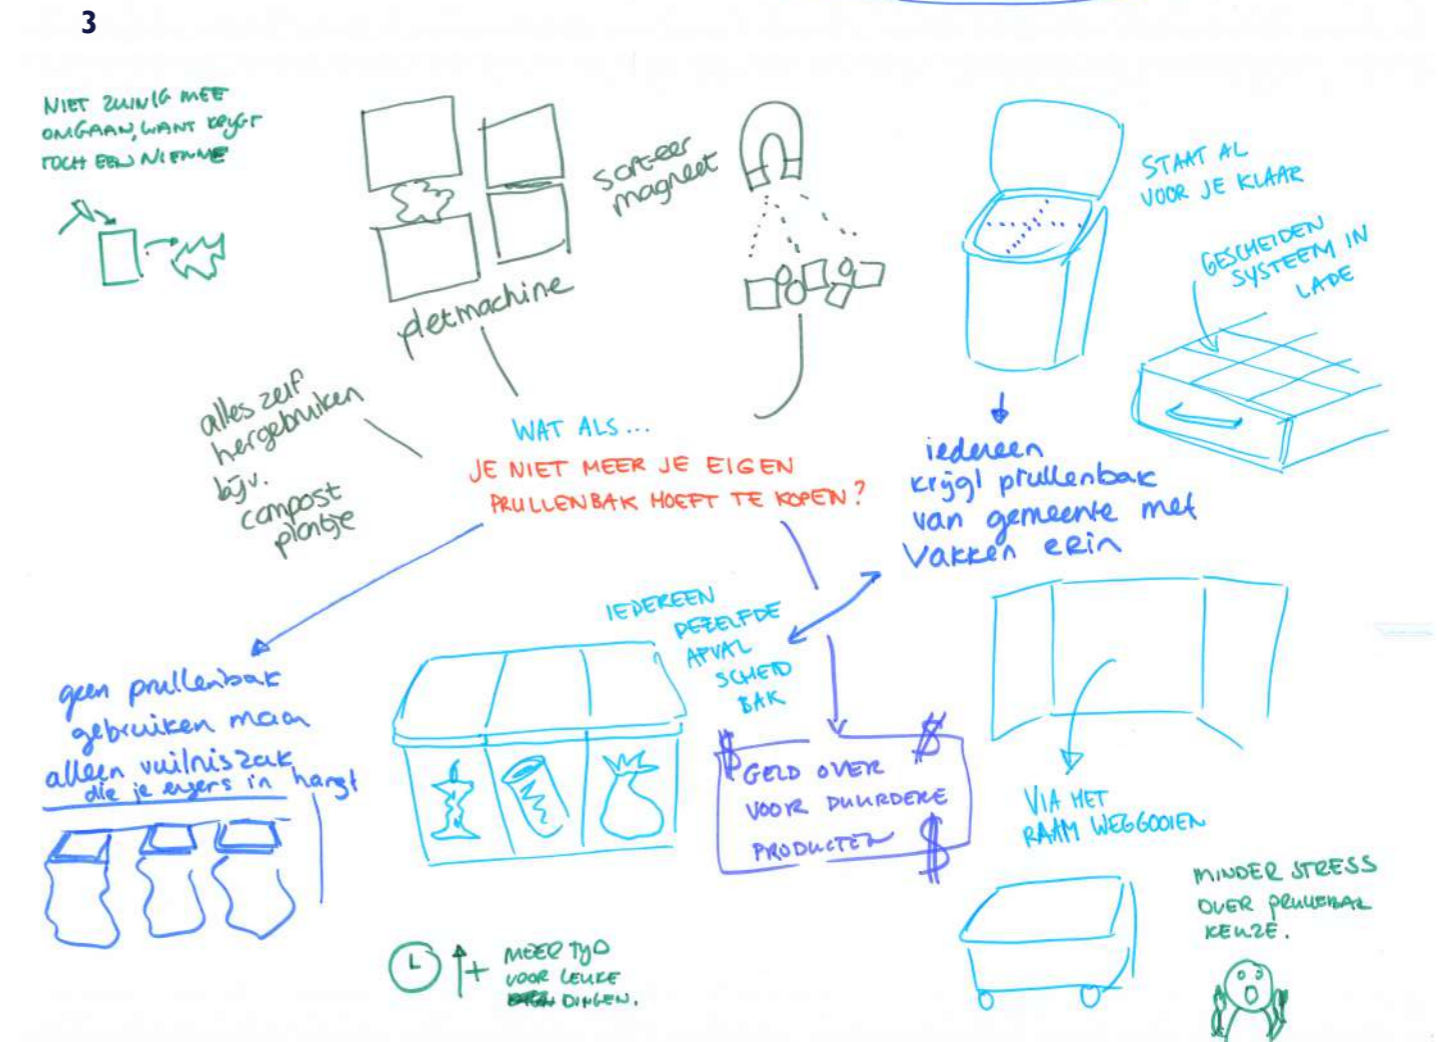 3
NIET ZUINIG MEE
OMGAAN, WANT KRYGT
TOCH EEN NIEUWE
pletmachine
sorteer
magneet
STAAT AL
VOOR JE KLAAR
GESCHEIDEN
SYSTEEM IN
LADE
alles zelf
hergebruiken
bijv.
compost
plantje
WAT ALS...
JE NIET MEER JE EIGEN
PRULLENBAK HOEFT TE KOPEN?
iedereen
krijgt prullenbak
van gemeente met
vakken erin
IEDEREEN
DEZELFDE
AFVAL
SCHEID
BAK
geen prullenbak
gebruiken maar
alleen vuilniszak
die je ergens in hangt
$ $
GELD OVER
VOOR DUURDERE
PRODUCTEN $
VIA HET
RAAM WEGGOOIEN
MINDER STRESS
OVER PRULLEBAK
KEUZE.
+ MEER TYD
VOOR LEUKE
DINGEN.